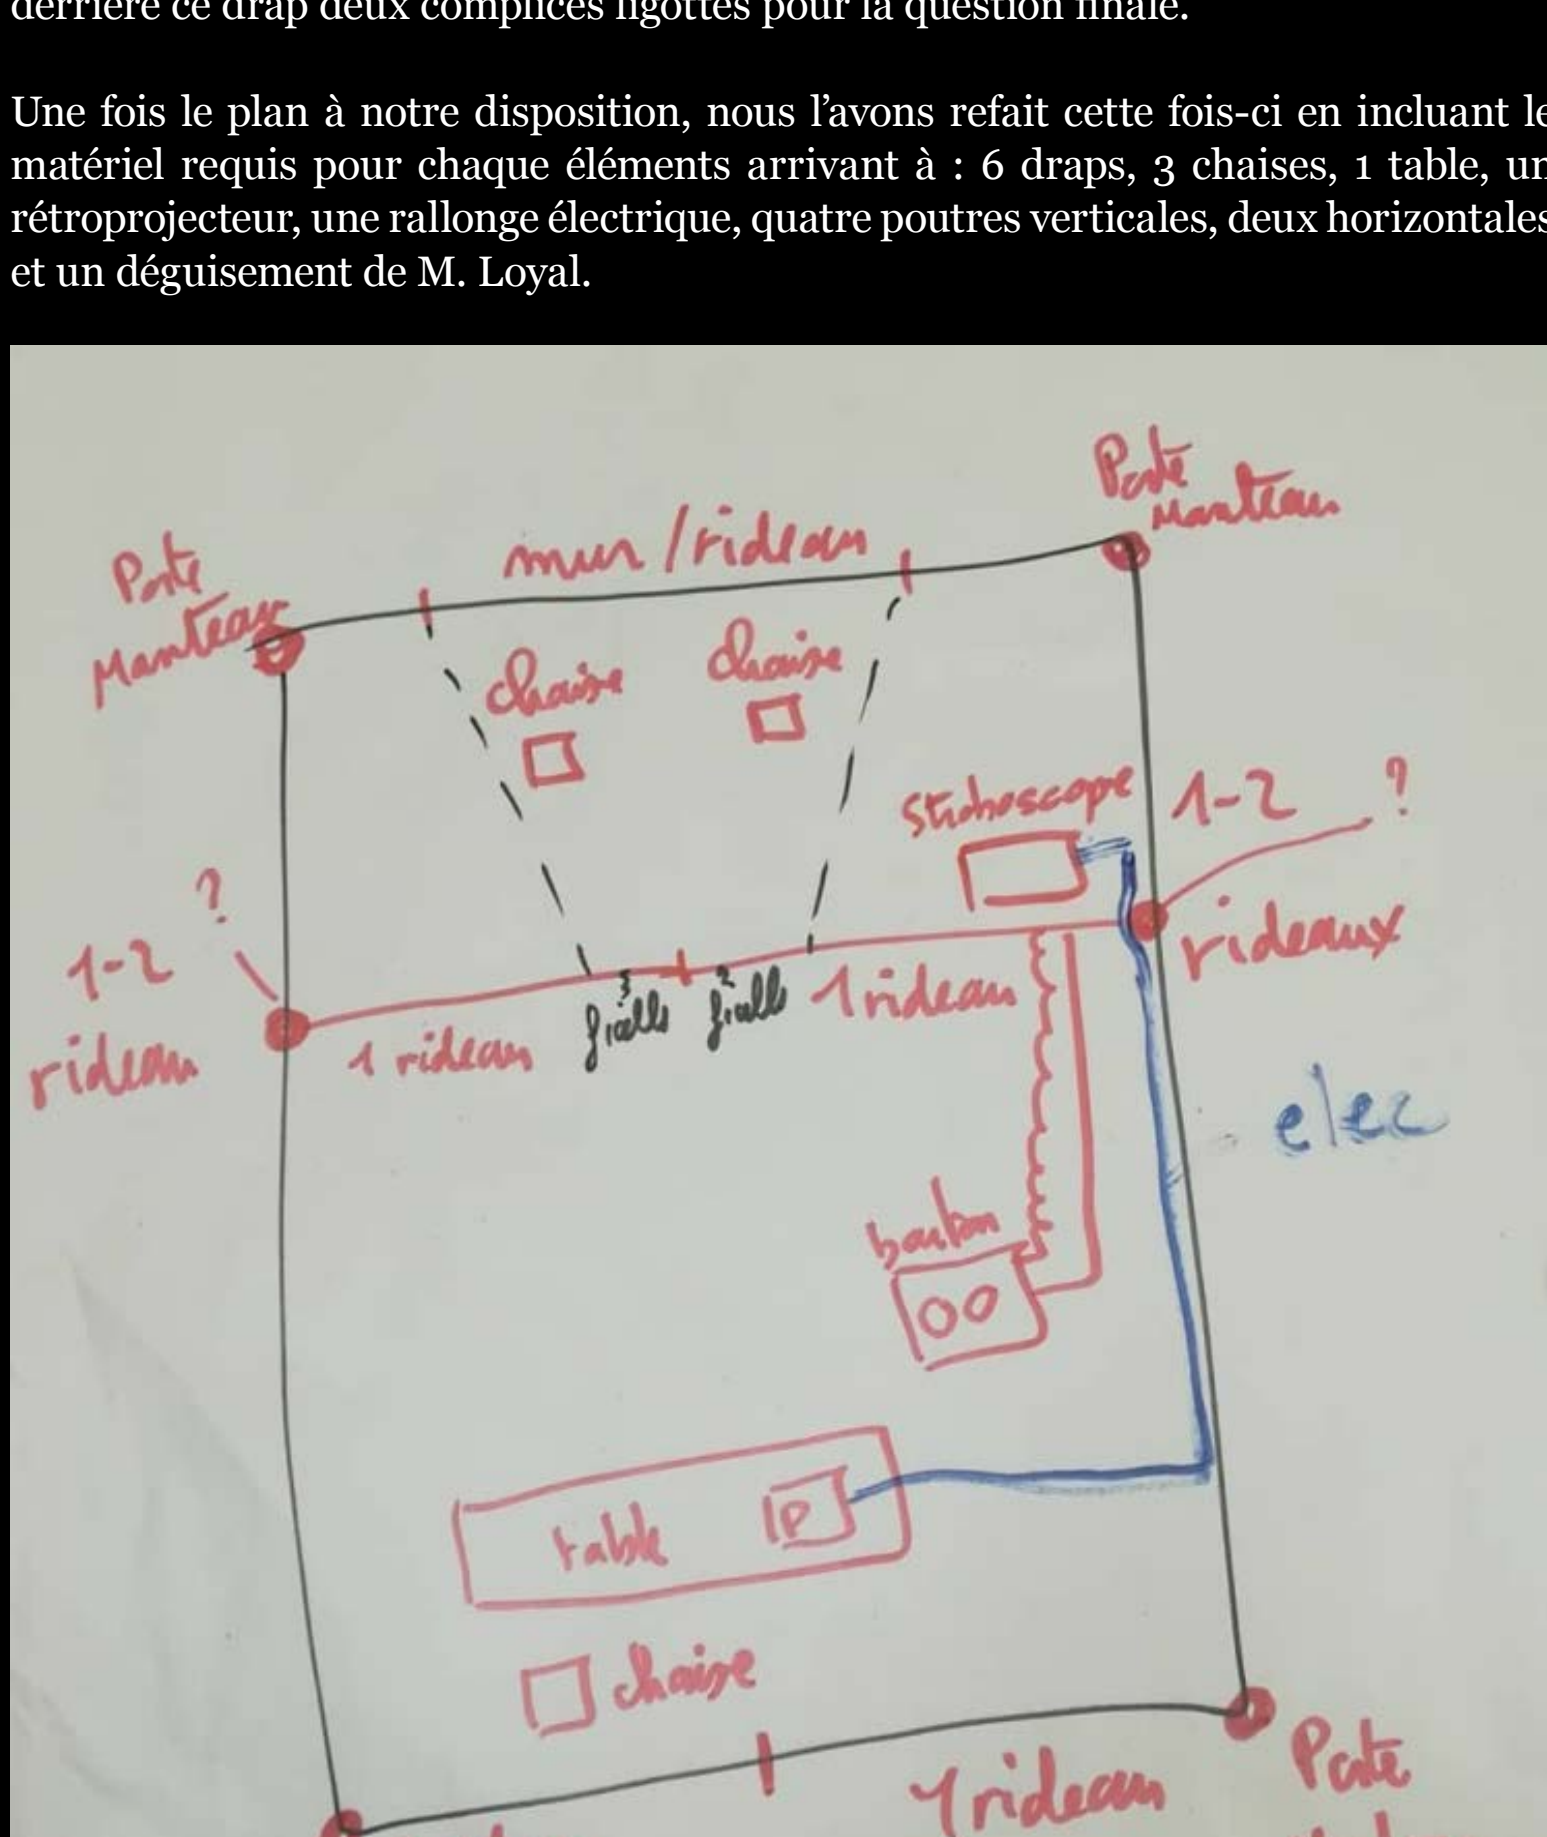 derrière ce drap deux complices ligottés pour la question finale.
Une fois le plan à notre disposition, nous l'avons refait cette fois-ci en incluant le
matériel requis pour chaque éléments arrivant à : 6 draps, 3 chaises, 1 table, un
rétroprojecteur, une rallonge électrique, quatre poutres verticales, deux horizontales
et un déguisement de M. Loyal.
Porte
Manteau
mur / rideau
Porte
Manteau
chaise
chaise
Stroboscope
1-2 ?
rideaux
1-2 ?
rideau
1 rideau
ficelle
ficelle
1 rideau
elec
bouton
OO
table
P
chaise
1 rideau
Porte